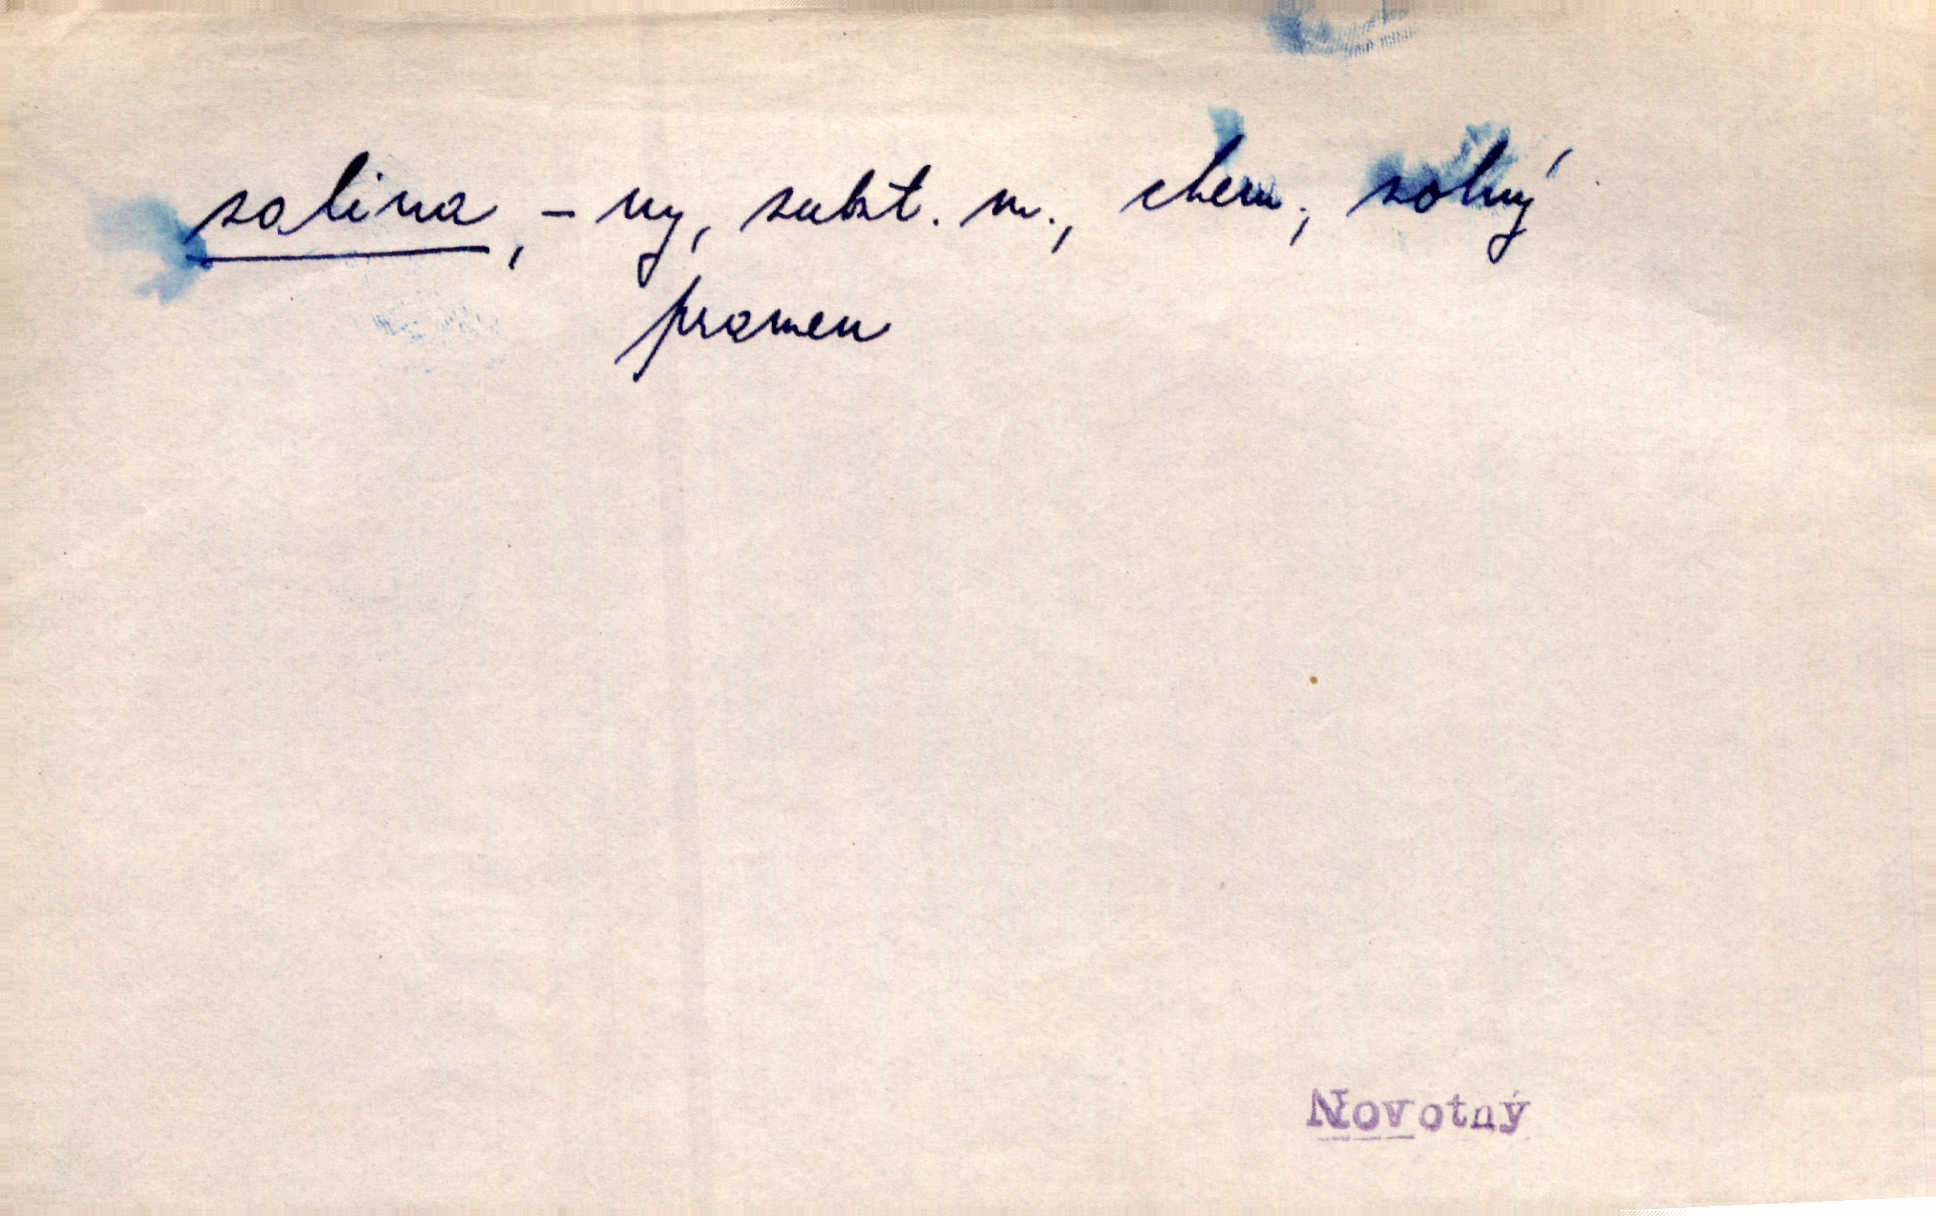 salina, -ny, subst. m., chem., solný
pramen
Novotný